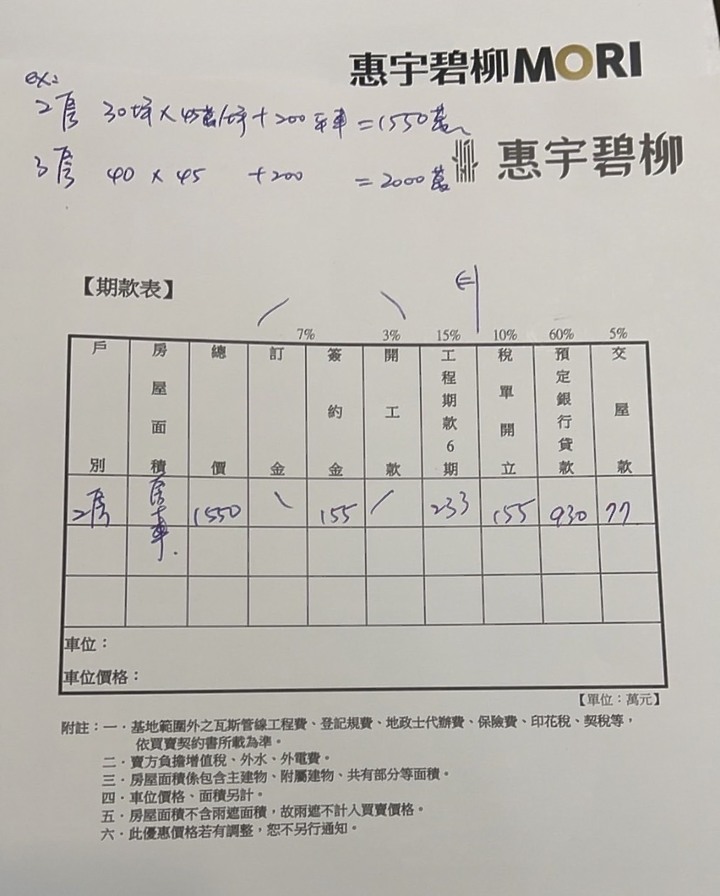 惠宇碧柳MORI
ex:
2房 30坪×45萬/坪+200平車=1550萬
惠宇碧柳
3房 40×45 +200 =2000萬
【期款表】
7% 3% 15% 10% 60% 5%
戶別 房屋面積 總價 訂金 簽約金 開工款 工程期款6期 稅單開立 預定銀行貸款 交屋款
2房 房+車 1550 155 233 155 930 77
車位：
車位價格：
【單位：萬元】
附註：一．基地範圍外之瓦斯管線工程費、登記規費、地政士代辦費、保險費、印花稅、契稅等，
依買賣契約書所載為準。
二．賣方負擔增值稅、外水、外電費。
三．房屋面積係包含主建物、附屬建物、共有部分等面積。
四．車位價格、面積另計。
五．房屋面積不含雨遮面積，故雨遮不計入買賣價格。
六．此優惠價格若有調整，恕不另行通知。